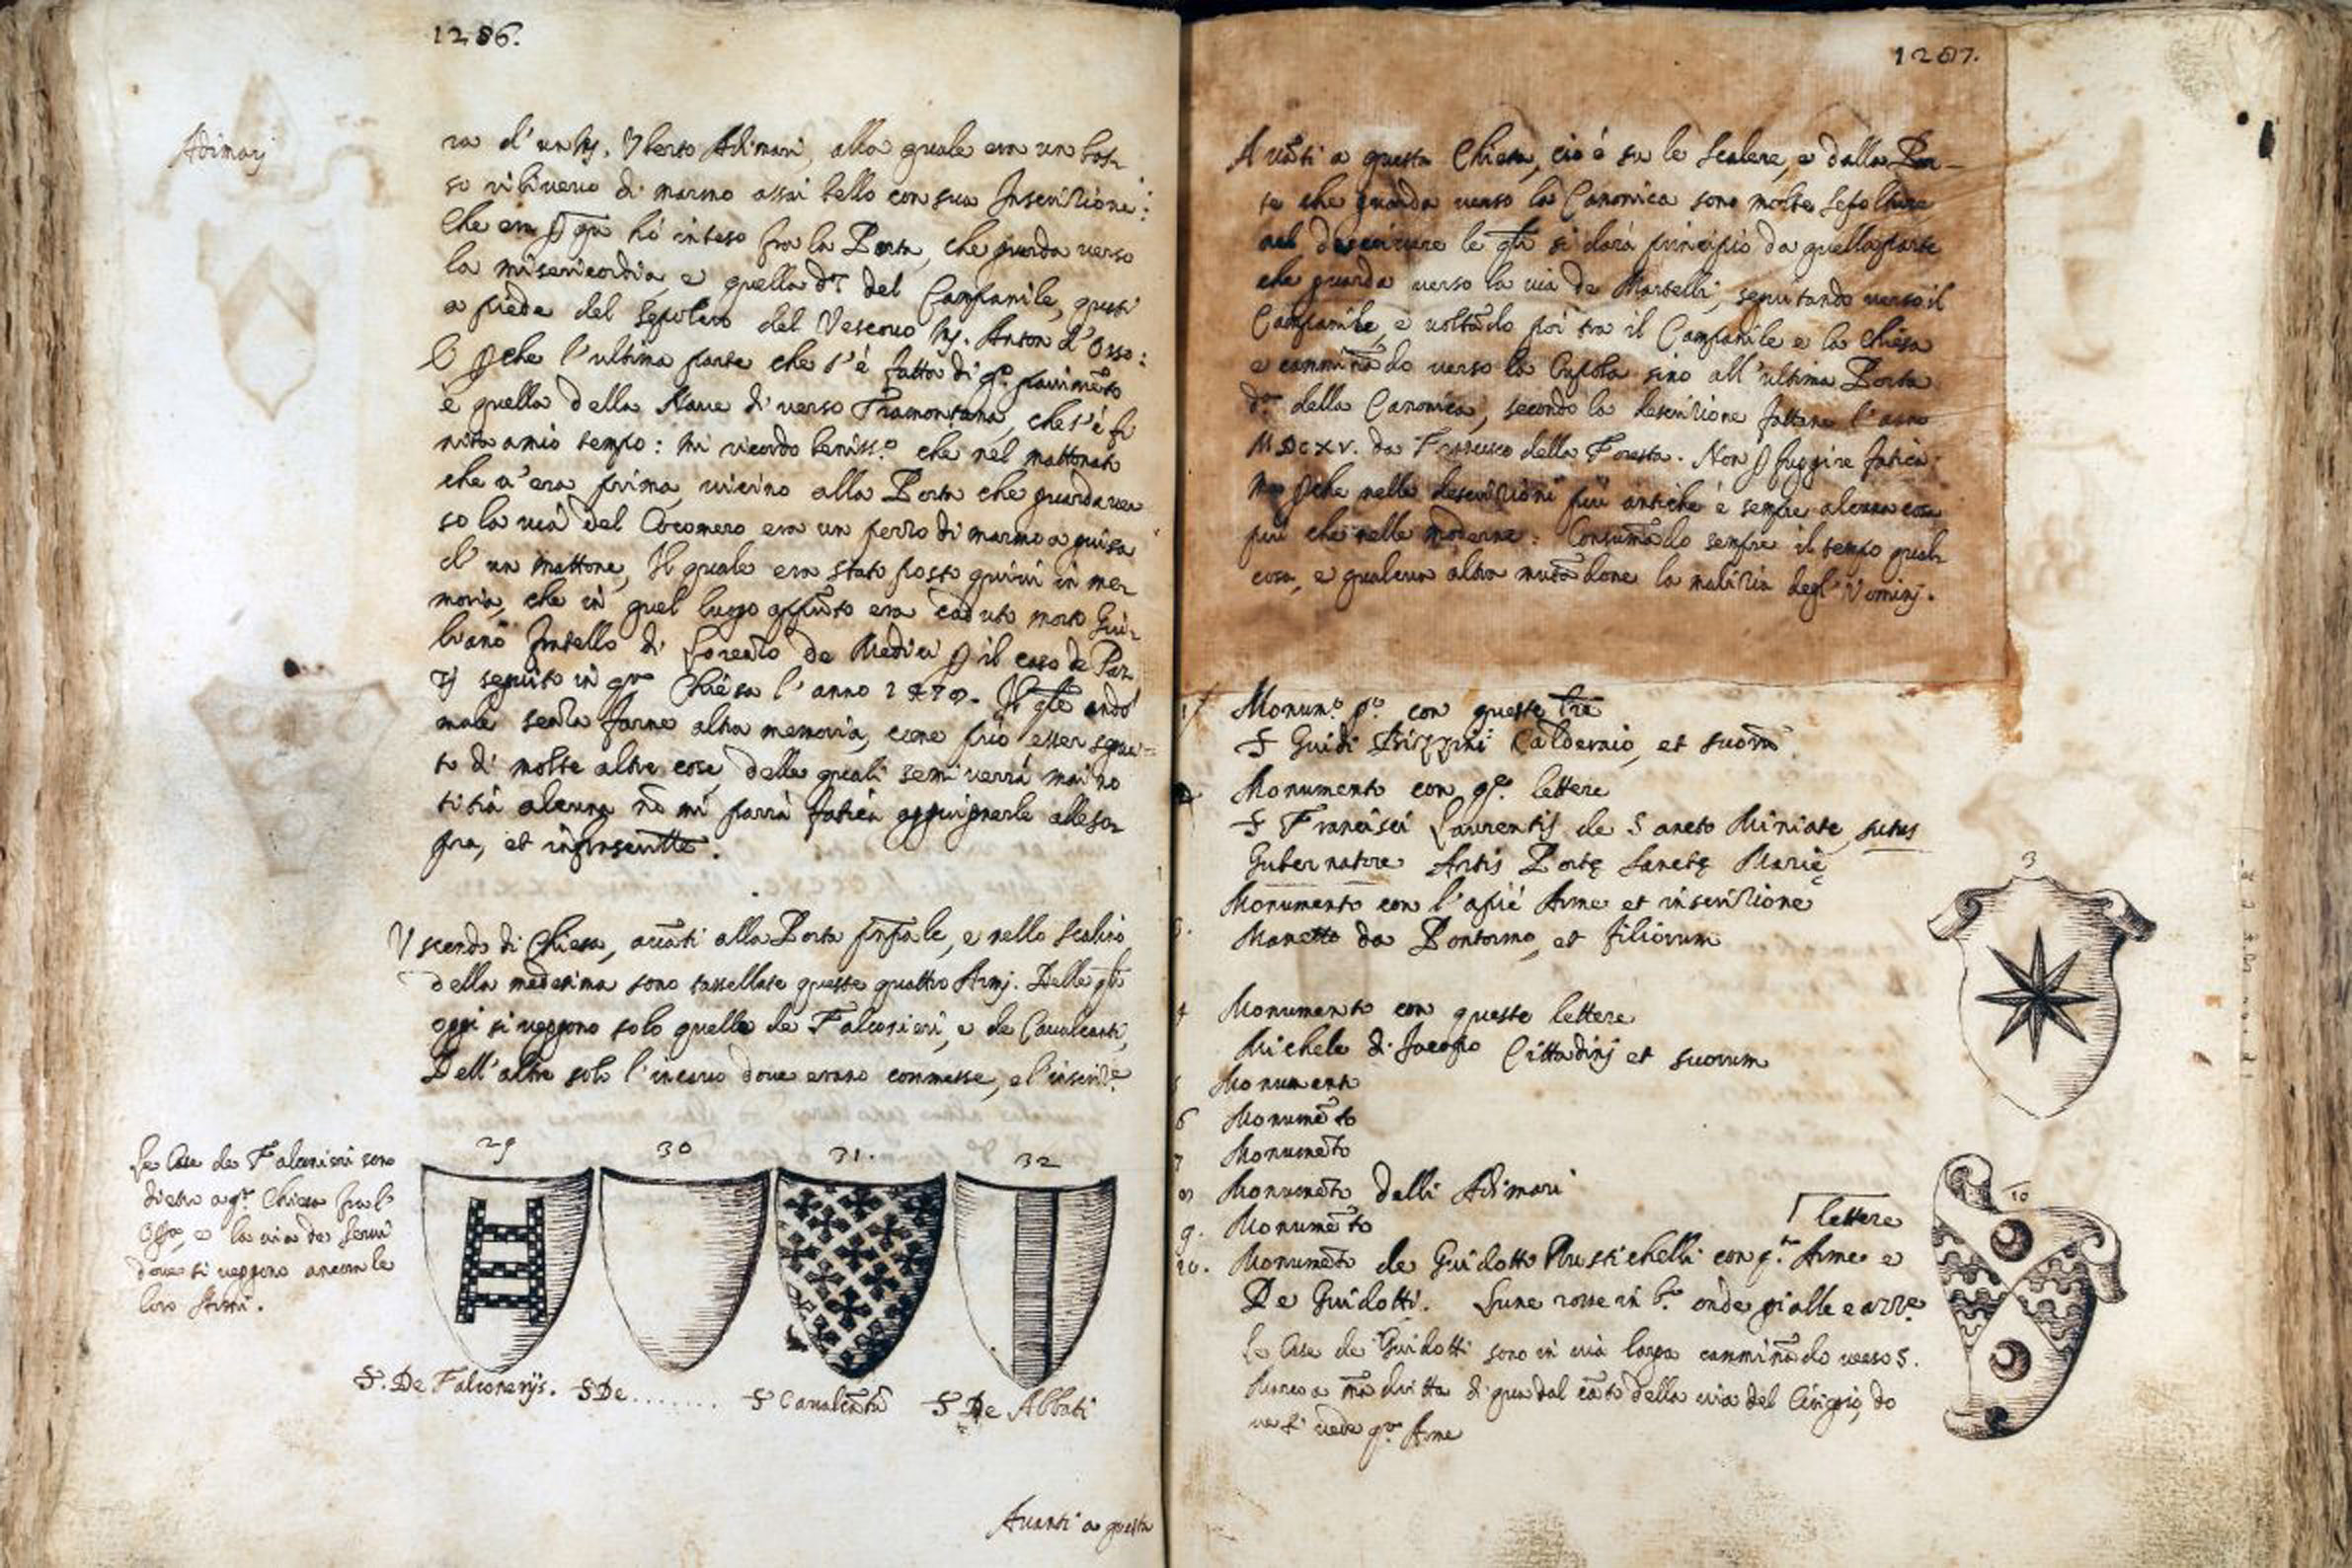 1286.
Adimarj
ra d'un Mr. Uberto Adimari, alla quale era un bas
so rilievo di marmo assai bello con sua Inscrizione:
che era p qto hò inteso fra la Porta, che guarda verso
la misericordia, e quella dta del Campanile, quasi
a piede del Sepolcro del Vescovo Mr. Anton d'Orso:
E pche l'ultima parte che s'è fatta di qo pavimẽto
è quella della Nave di verso Tramontana, che s'è fi
nita a mio tempo: mi ricordo beniss.o che nel mattonato
che v'era prima, vicino alla Porta che guarda ver
so la via del Cocomero era un pezzo di marmo a guisa
d'un mattone, Il quale era stato posto quivi in me
moria, che in quel luogo appũto era caduto morto Giu
liano fratello di Lorẽzo de Medici p il caso de Paz
zj seguito in qta Chiesa l'anno 1478. Il qle andò
male senza farne altra memoria, come può esser segui
to di molte altre cose, delle quali se mi verrà mai no
titia alcuna nõ mi parrà fatica aggiugnerle alle so
pra, et infrascritte.
Uscendo di Chiesa, avãti alla Porta prñpale, e nello scalino
della medesima sono tassellate queste quattro Armj. Delle qli
oggi si veggono solo quelle de Falconieri, e de Cavalcanti,
Dell'altre solo l'incavo dove erano commesse, e l'inscrize
Le Case de Falconieri sono
dietro a qta Chiesa fra l'
Opa, e la via de Servi
dove si veggono ancora le
loro Armi.
29 30 31. 32
S. De Falconerijs. S De ........ S Cavalcãtũ S De Abbati
Avanti a questa
1287.
Avãti a questa Chiesa, cioè su le Scalere, e dalla Par-
te che guarda verso la Canonica sono molte sepolture
nel descrivere le qli si darà principio da quella parte
che guarda verso la via de Martelli, seguitando verso il
Campanile, e voltãdo poi tra il Campanile e la Chiesa
e camminãdo verso la Cupola sino all'ultima Porta
dta della Canonica, secondo la descrizione fattane l'anno
MDCXV. da Francesco della Foresta. Non p fuggire fatica:
Ma pche nelle descrizioni più antiche è sempre alcuna cosa
più che nelle moderne: Consumãdo sempre il tempo qualc
cosa, e qualcun altra mutãdone la malizia degl'Uominj.
1 Monum.o p.o con queste lre
S Guidi Bizzini Calderaio, et suorũ
2 Monumento con qe lettere
S Francisci Laurentij de Sancto Miniate, sutus
Gubernatore Artis Portę Sanctę Marię
Monumento con l'apiè Arme et inscrizione
3. Manetto da Pontormo, et filiorum
3
4 Monumento con queste lettere
Michele di Jacopo Cittadinj et suorum
5 Monumento
6 Monumẽto
7 Monumẽto
8 Monumẽto delli Adimari
9. Monumẽto
10. Monumẽto de Guidotti Rustichelli con qta Arme e lettere
De Guidotti. Lune rosse in bo onde gialle e azze
10
Le Case de Guidotti sono in via larga camminãdo verso S.
Marco a mã dritta di qua dal cãto della via del Ciriegio, do
ve si vede qta Arme